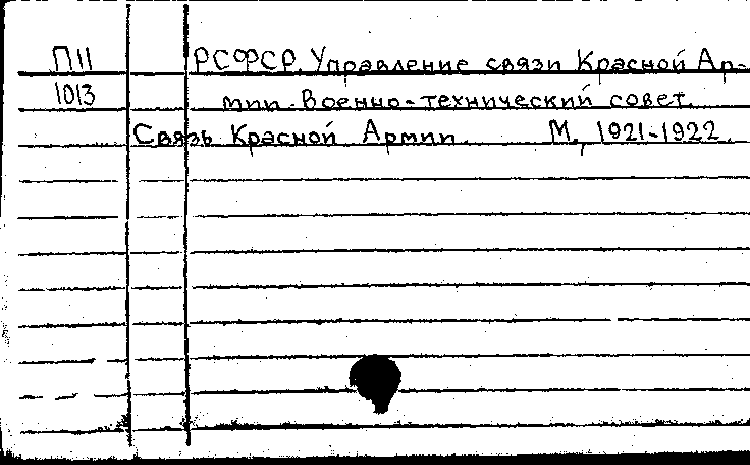 П11 РСФСР. Управление связи Красной Ар-
1013 мии. Военно-технический совет.
Связь Красной Армии. М., 1921-1922.